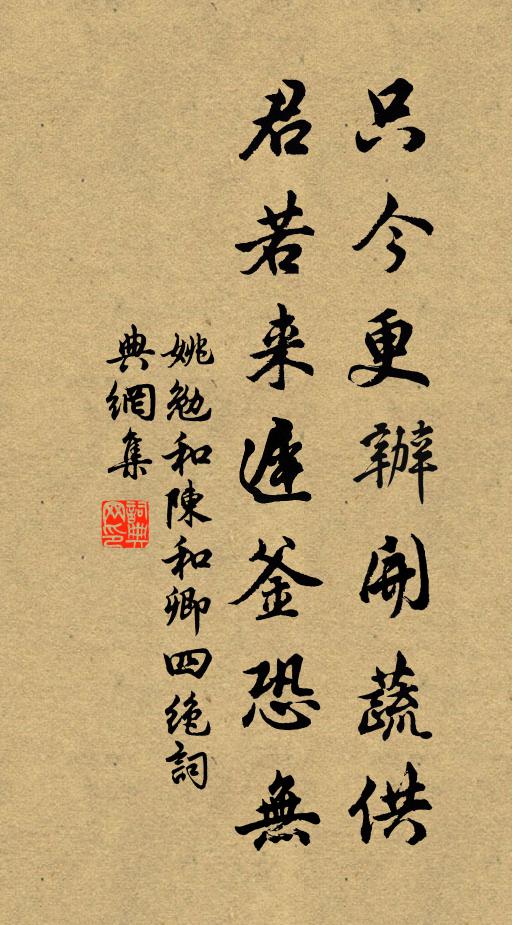 只今更辦開蔬供
君若来遲釜恐無
姚勉和陳和卿四绝詞
典網集
詞典
网印